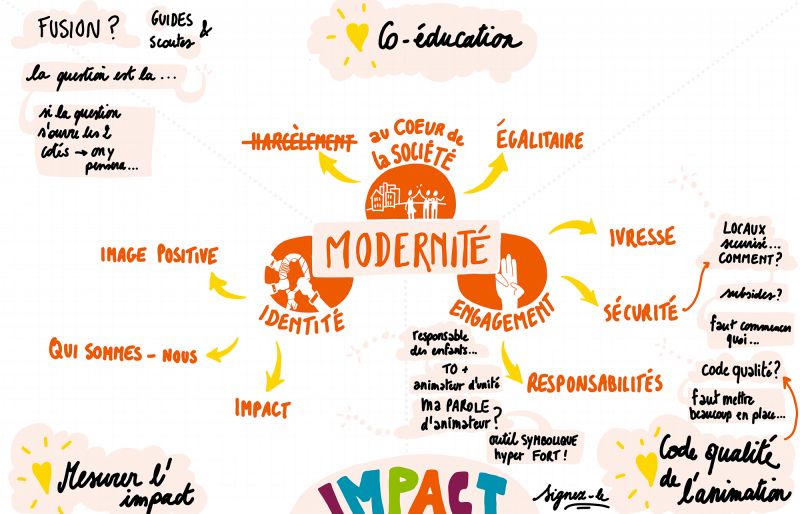 FUSION ?
GUIDES &
Scoutes
la question est la ...
si la question
s'ouvre les 2
cotés → on y
pensera...
Co-éducation
HARCÈLEMENT
au COEUR de
la SOCIÉTÉ
ÉGALITAIRE
MODERNITÉ
IMAGE POSITIVE
IDENTITÉ
QUI SOMMES - NOUS
IMPACT
ENGAGEMENT
IVRESSE
SÉCURITÉ
RESPONSABILITÉS
LOCAUX
securisé...
COMMENT ?
subsides ?
faut commencer
quoi ...
code qualité ?
faut mettre
beaucoup en place...
responsable
des enfants...
TO +
animateur d'unité
ma PAROLE
d'animateur ?
outil SYMBOLIQUE
hyper FORT !
Mesurer l'
impact
IMPACT
signez-le
Code qualité
de
l'animation